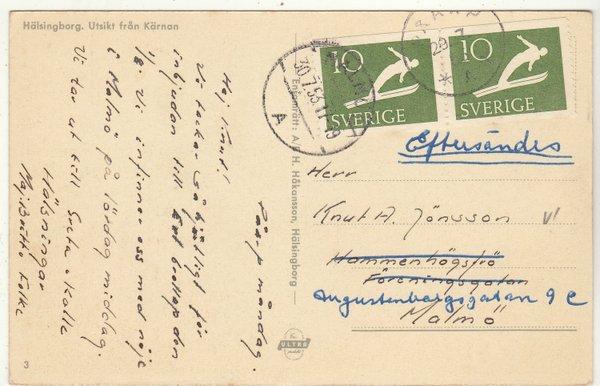 Hälsingborg. Utsikt från Kärnan
Råå måndag.
Hej Knut!
Vi tackar så hjärtligt för
inbjudan till bröllop den
1/8. Vi infinner oss med nöje
i Malmö på lördag middag.
Vi tar ut till Greta o Kalle
Hälsningar
Maj-Britt o Folke
3
Ensamrätt: A. H. Håkansson, Hälsingborg
ULTRA
10
SVERIGE
10
SVERIGE
30.7.53.11-19
A
29 7
Eftersändes
Herr
Knut A. Jönsson
Hammenhögsfrö
Föreningsgatan
Augustenborgsgatan 9 C
Malmö